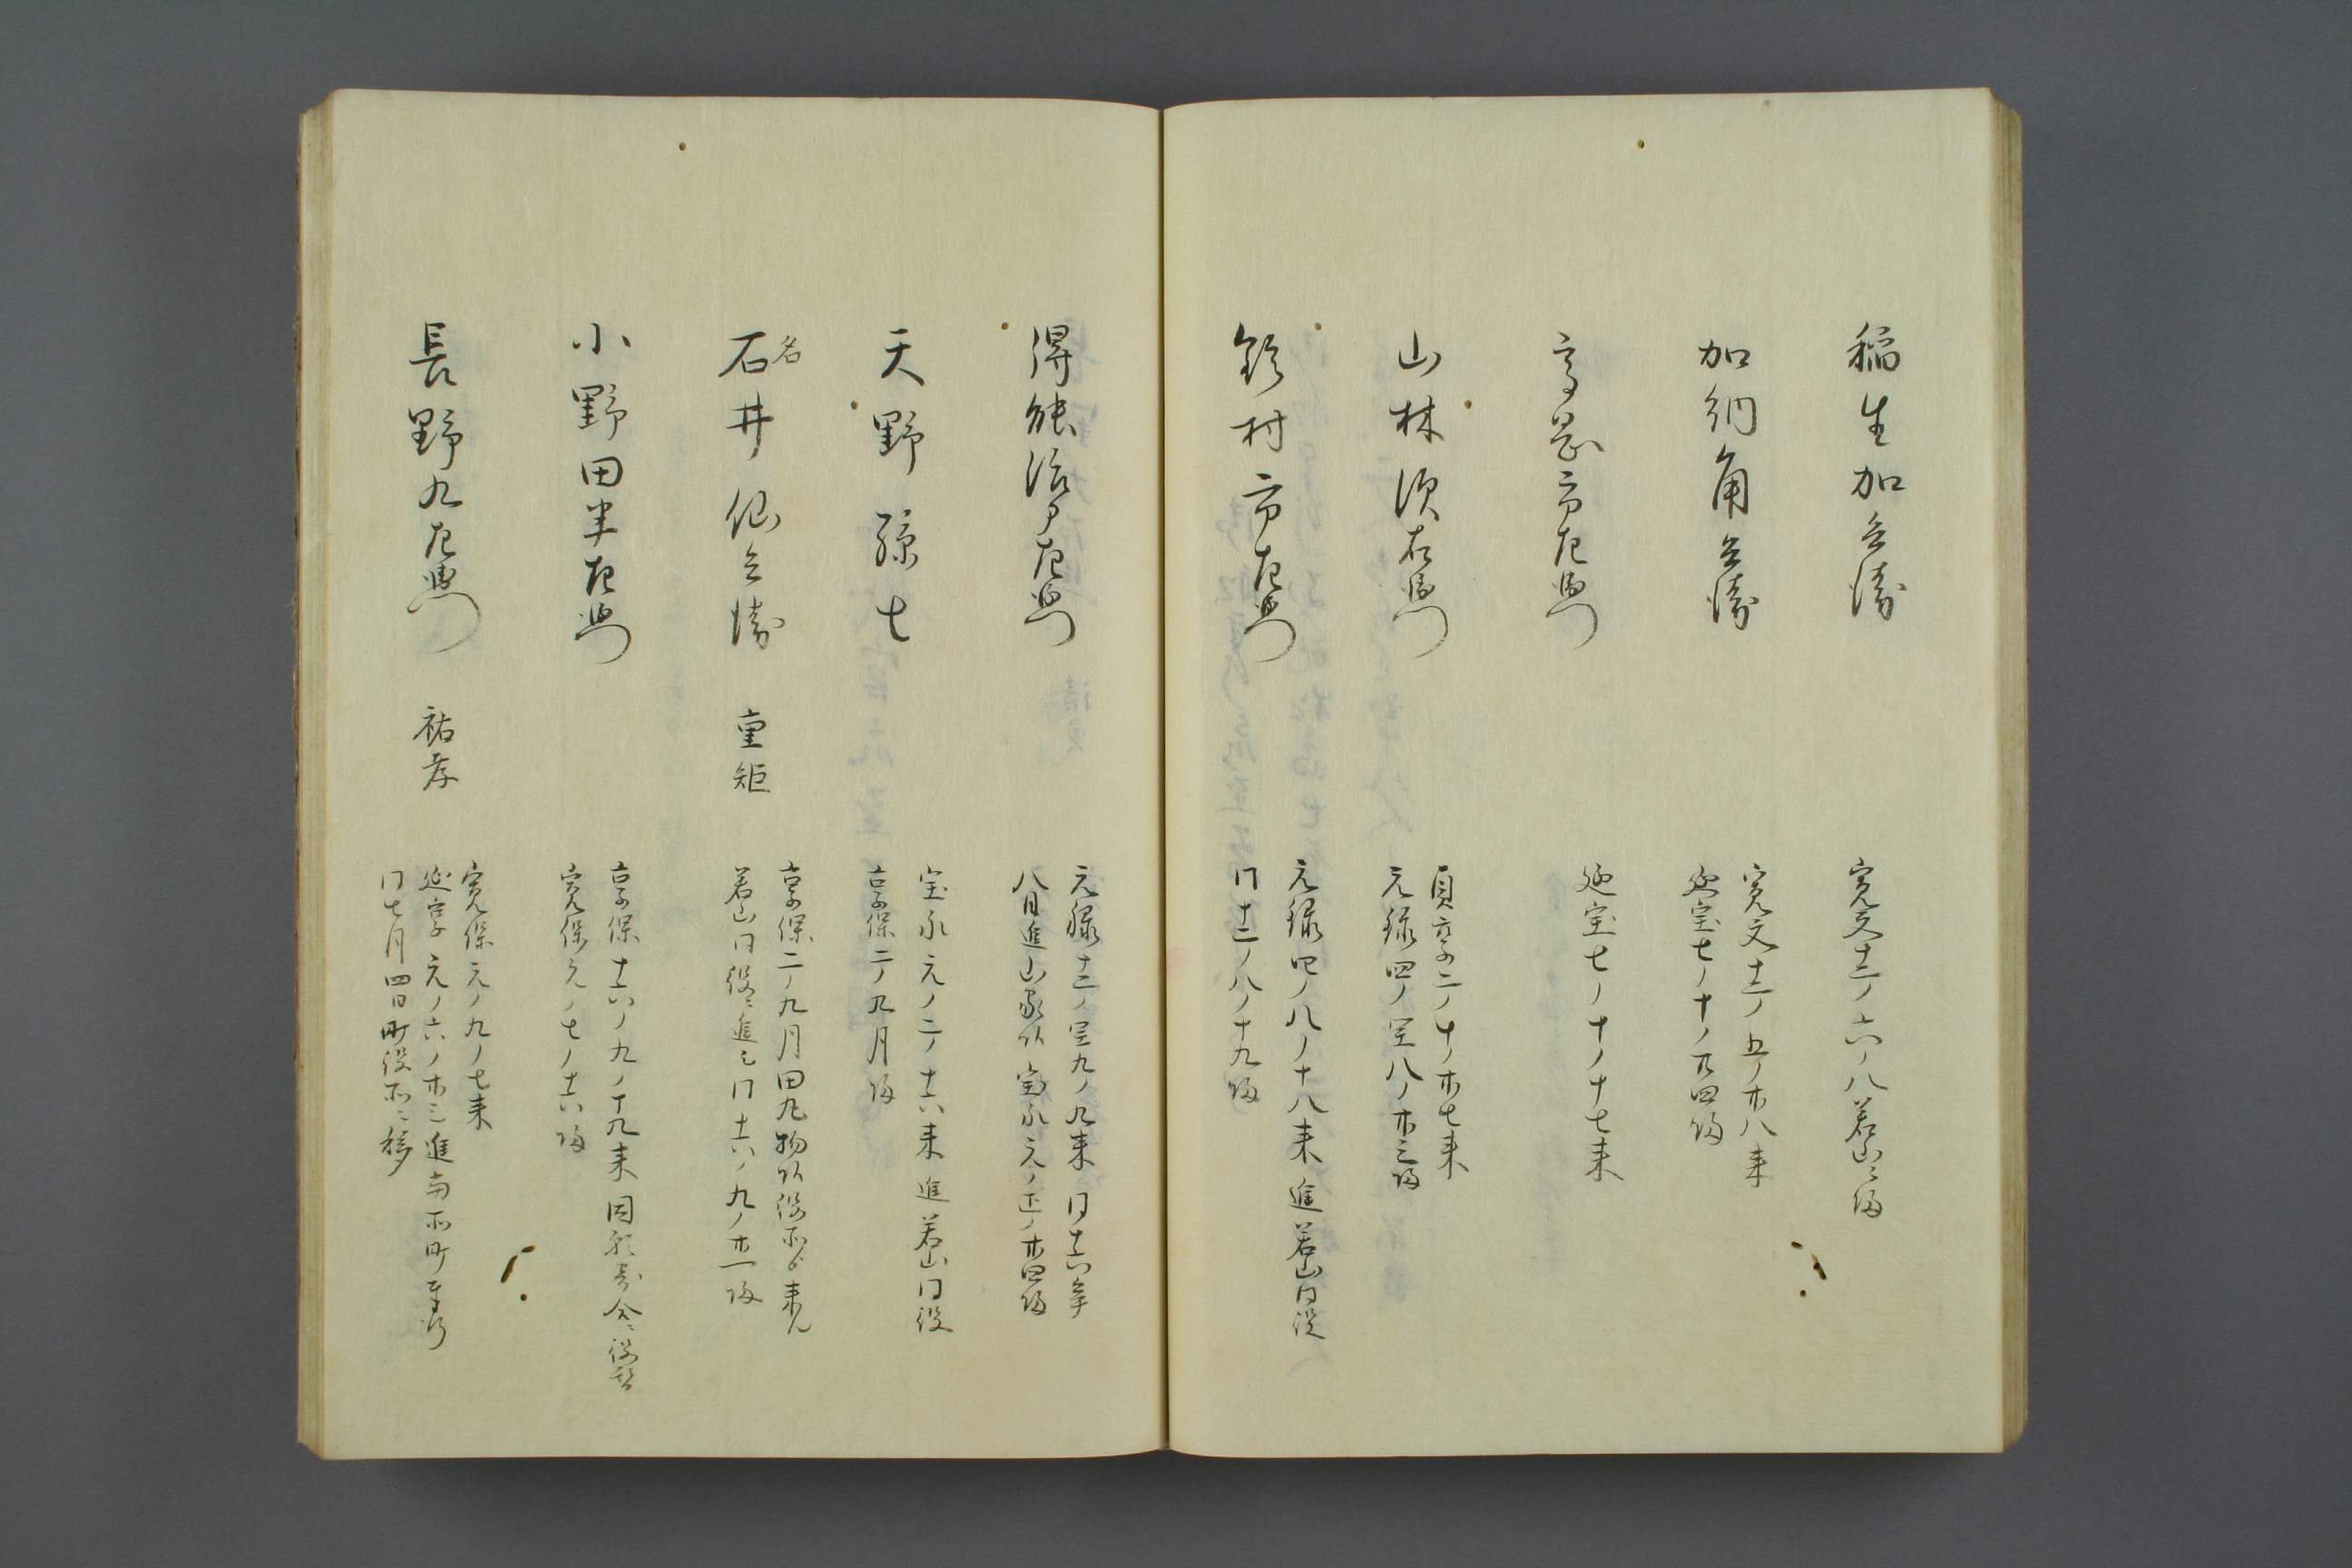 稲生加兵衛
寛文十二ノ六ノ八若山ニ帰
加納角兵衛
寛文十二ノ五ノ廿八来
延宝七ノ十ノ廿四帰
高岡市左衛門
延宝七ノ十ノ十七来
山林次右衛門
貞享二ノ十ノ廿七来
元禄四ノ閏八ノ廿三帰
鈴村市左衛門
元禄四ノ八ノ十八来 進若山同役
同十二ノ八ノ十九帰
得能治了左衛門
元禄十二ノ閏九ノ九来 同十六年
八月進山家以 宝永元ノ正ノ廿四帰
天野孫七
宝永元ノ二ノ十六来 進若山同役
享保二ノ九月帰
名
石井仙兵衛 重矩
享保二ノ九月田丸物以役所ゟ来
若山同役ニ進 同十六ノ九ノ廿一帰
小野田半左衛門
享保十六ノ九ノ十九来
寛保元ノ七ノ十六帰
長野九左衛門 祐孝
寛保元ノ九ノ七来
延享元ノ六ノ廿三進 町奉行
同七月四日町役所ニ移